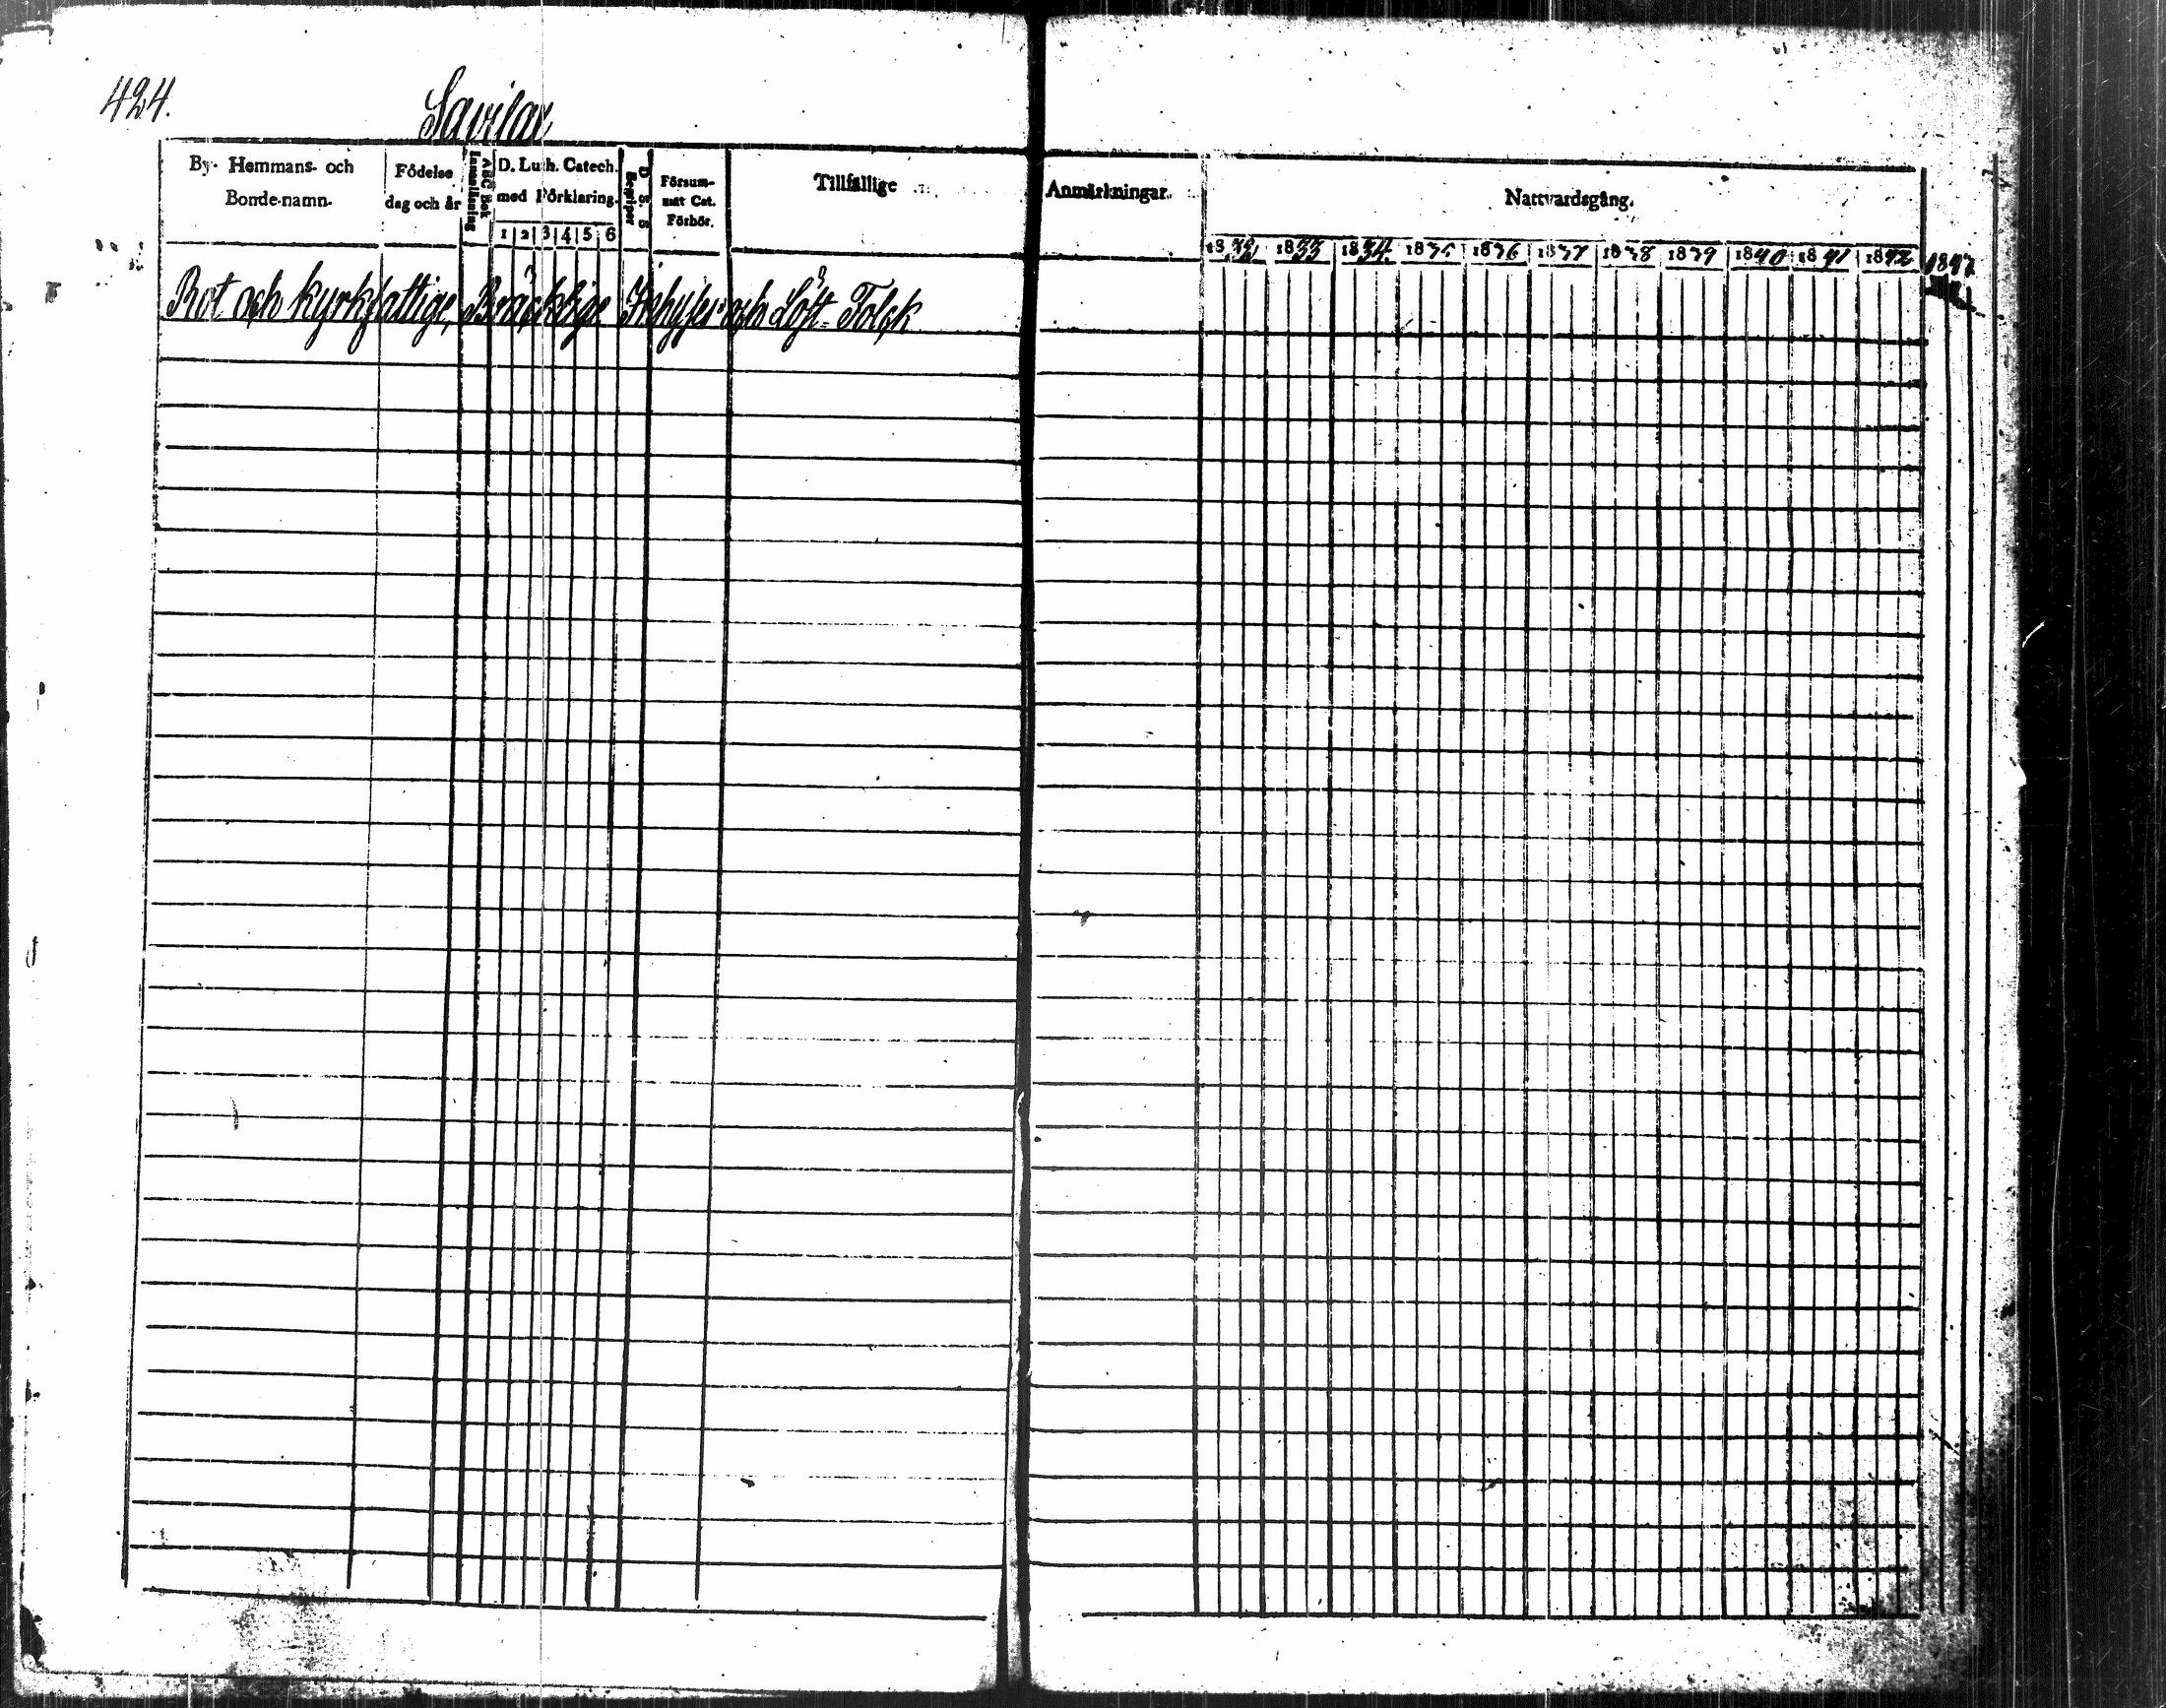 424.
Savilax
By- Hemmans- och Bonde-namn.
Födelse dag och år
ABC Bok Innanläsning
D. Luth. Catech. med Förklaring.
1 2 3 4 5 6
D. S. S. Begriper
Försum- mat Cat. Förhör.
Tillfällige
Anmärkningar.
Nattvardsgång.
1832 1833 1834 1835 1836 1837 1838 1839 1840 1841 1842 1843
Rot och kyrkfattige, Bräcklige Inhyses och Löst Folck